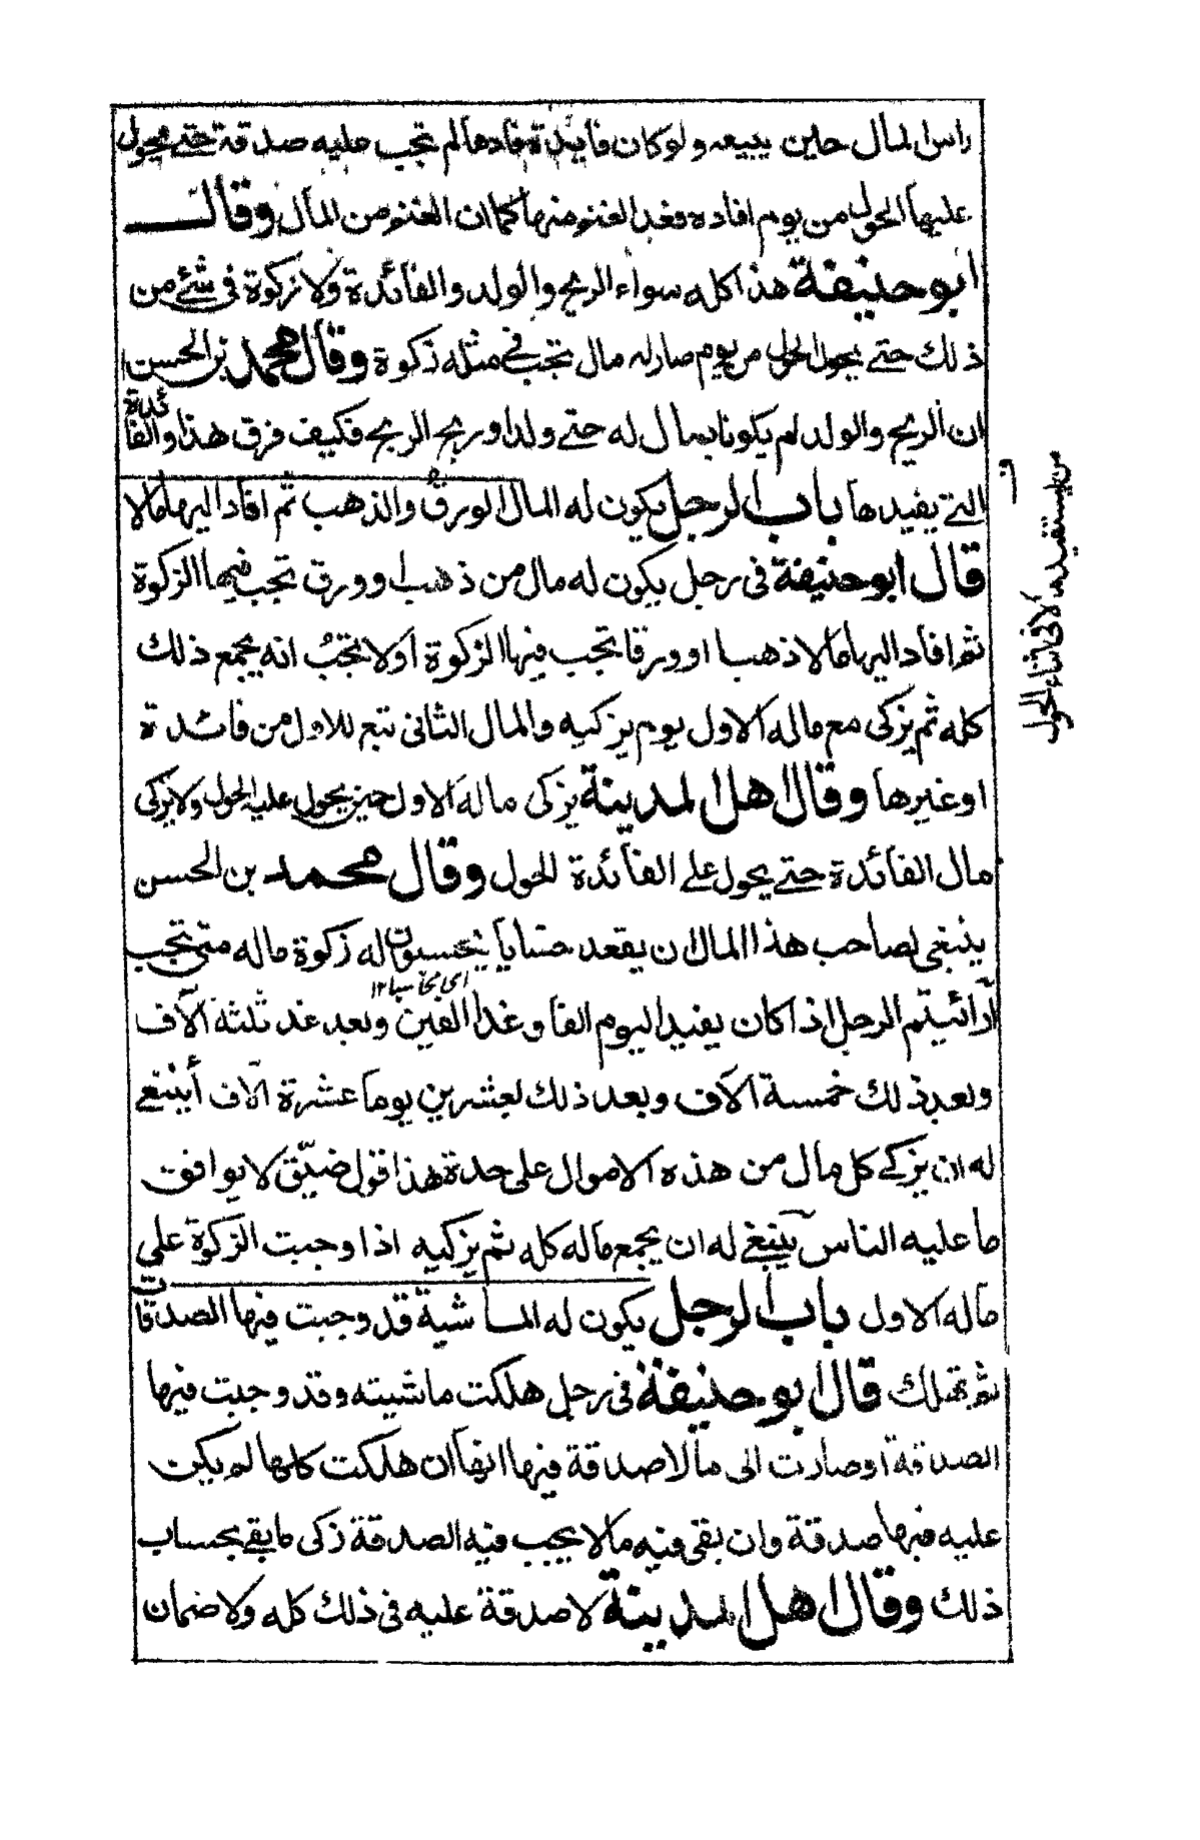 راس المال حين يبيعه ولو كان فائدة فادها لم تجب عليه صدقة حتے يحول
عليها الحول من يوم افاده فغد الغنم منها كما ان الغنم من المال وقال
ابو حنيفة هذا كله سواء الربح والولد والفائدة ولا زكوة فى شئ من
ذلك حتے يحول الحول من يوم صار له مال تجب فے مثله زكوة وقال محمد بن الحسن
ان الربح والولد لم يكونا بمال له حتے ولدا وربح الربح فكيف فرق هذا والفائدة
التے يفيدها باب الرجل يكون له المال الورق والذهب ثم افاد اليها مالا
قال ابو حنيفة فى رجل يكون له مال من ذهب او ورق تجب فيها الزكوة
ثم افاد اليها مالا ذهبا او ورقا تجب فيها الزكوة اولا تجب انه يجمع ذلك
كله ثم يزكى مع ماله الاول يوم يزكيه والمال الثانى تبع للاول من فائدة
او غيرها وقال اهل المدينة يزكى ماله الاول حين يحول عليه الحول ولا يزكى
مال الفائدة حتے يحول علے الفائدة الحول وقال محمد بن الحسن
ينبغى لصاحب هذا المال ان يقعد حسابا يحسبون له زكوة ماله متى تجب
اى محاسبا ١٢
أرائيتم الرجل اذا كان يفيد اليوم الفا وغدا الفين وبعد غد ثلثة آلاف
وبعد ذلك خمسة آلاف وبعد ذلك لعشرين يوما عشرة آلاف أينبغے
له ان يزكے كل مال من هذه الاموال على حدة هذا قول ضيّق لا يوافق
ما عليه الناس ينبغے له ان يجمع ماله كله ثم يزكيه اذا وجبت الزكوة على
ماله الاول باب الرجل يكون له الماشية قد وجبت فيها الصدقات
ثم تهلك قال ابو حنيفة فى رجل هلكت ماشيته وقد وجبت فيها
الصدقة او صارت الى ما لا صدقة فيها انها ان هلكت كلها لم يكن
عليه فيها صدقة وان بقى فيه ما لا يجب فيه الصدقة زكى ما بقے بحساب
ذلك وقال اهل المدينة لا صدقة عليه فى ذلك كله ولا ضمان
من يستفيده لا فى اثناء الحول